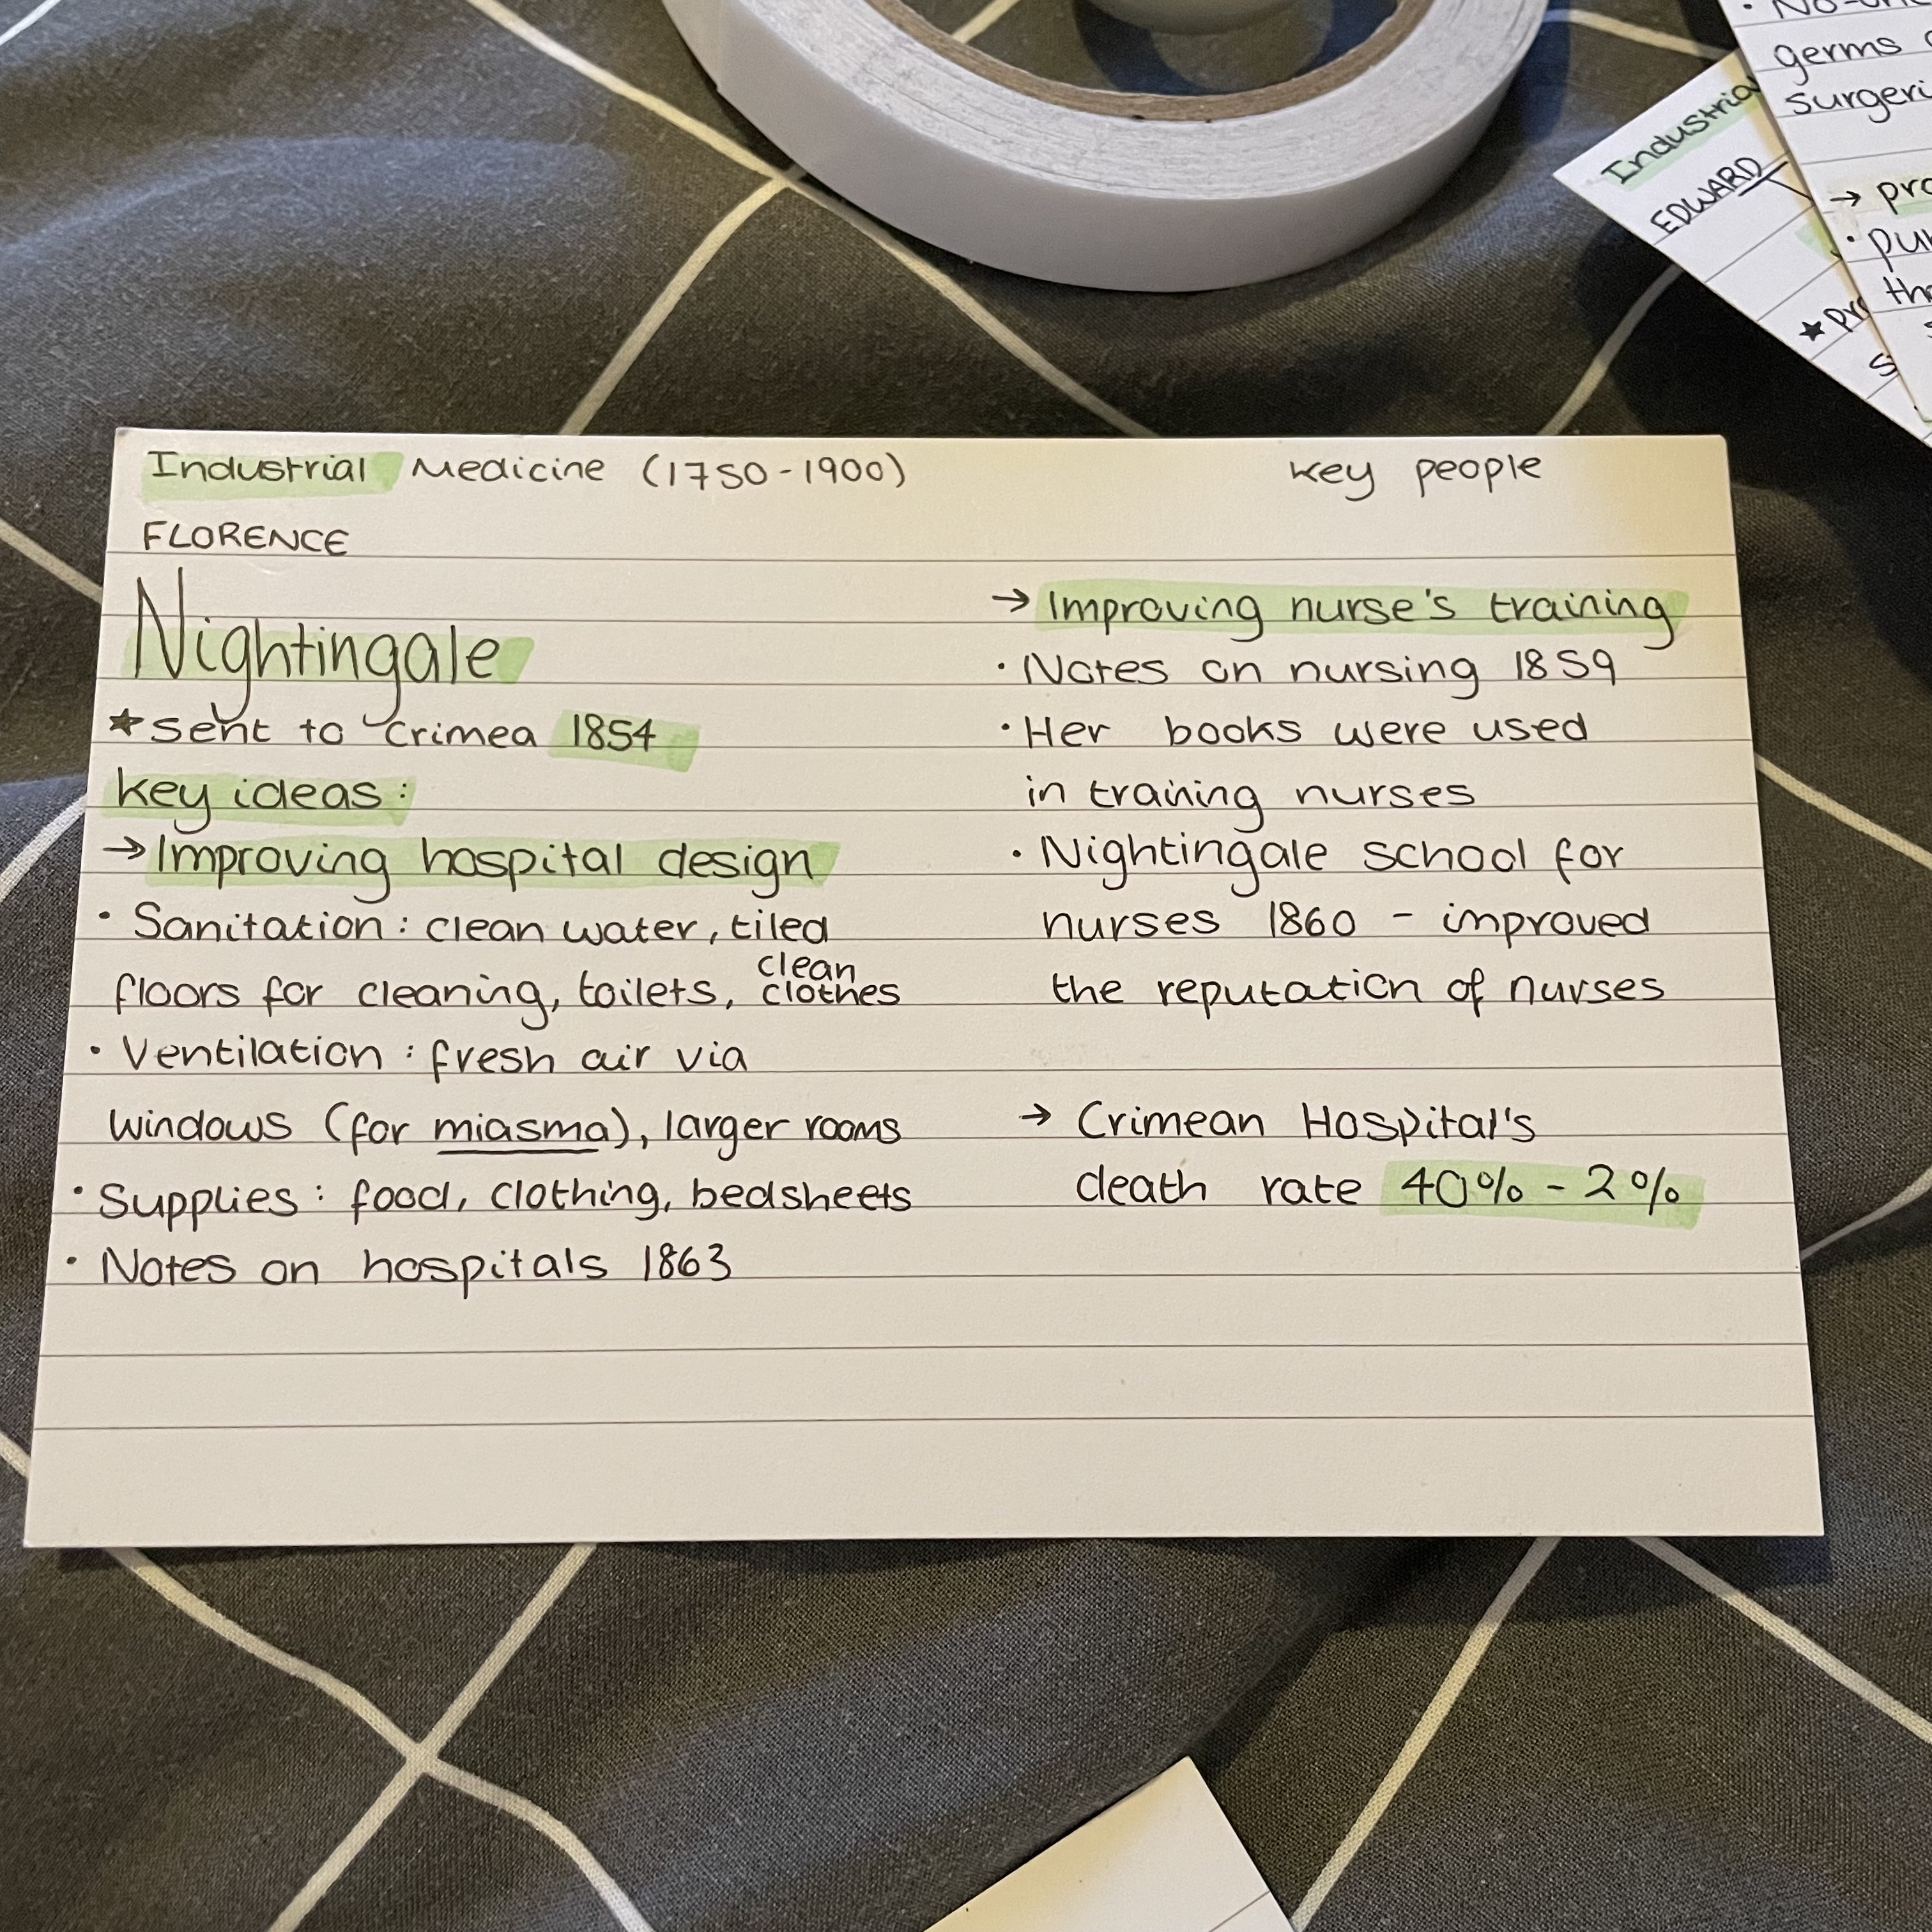 Industrial Medicine (1750-1900)
key people
FLORENCE
Nightingale
★ sent to Crimea 1854
key ideas:
→ Improving hospital design
· Sanitation: clean water, tiled
floors for cleaning, toilets, clean clothes
· Ventilation: fresh air via
windows (for miasma), larger rooms
· Supplies: food, clothing, bedsheets
· Notes on hospitals 1863
→ Improving nurse's training
· Notes on nursing 1859
· Her books were used
in training nurses
· Nightingale school for
nurses 1860 - improved
the reputation of nurses
→ Crimean Hospital's
death rate 40% - 2%
Industrial
EDWARD
germs